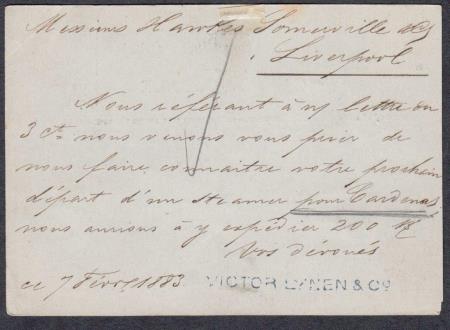 Messieurs Hawkes Somerville & Cº
Liverpool
Nous référant à n/ lettre du
3 ct nous venons vous prier de
nous faire connaitre votre prochain
départ d'un steamer pour Cardenas
nous aurions à y expédier 200
Vos dévoués
ce 7 Févr. 1883 VICTOR LYNEN & Cº